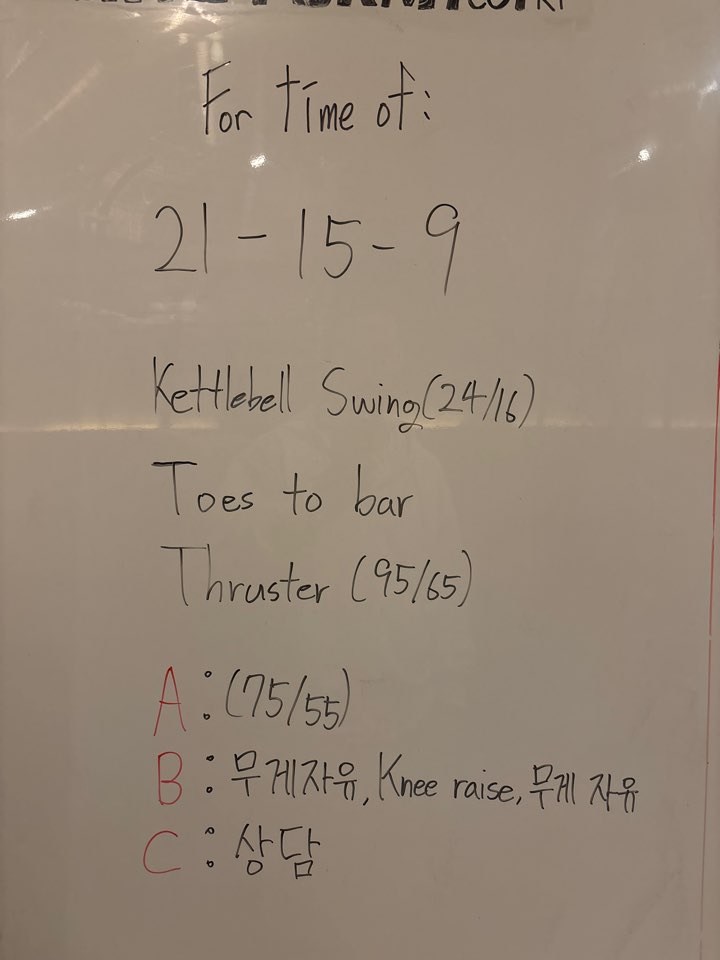 For time of:
21 - 15 - 9
Kettlebell Swing(24/16)
Toes to bar
Thruster (95/65)
A : (75/55)
B : 무게자유, Knee raise, 무게 자유
C : 상담